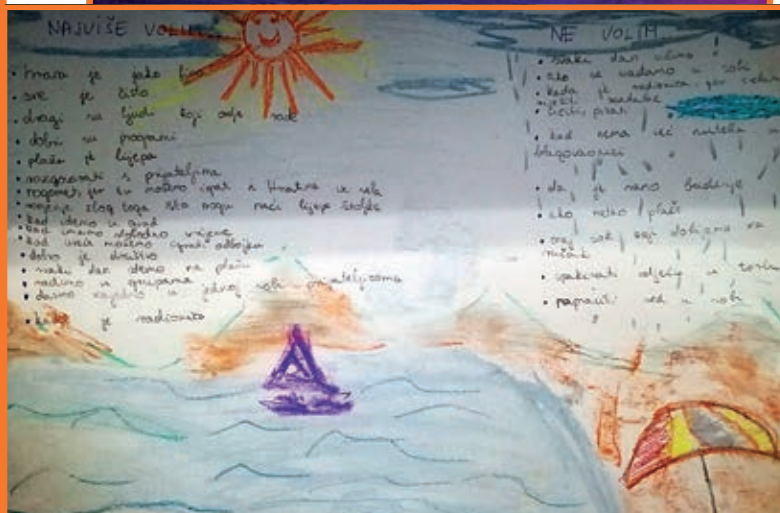 NAJVIŠE VOLIM...
• hrana je jako fina
• sve je čisto
• dragi su ljudi koji ovdje rade
• dobri su programi
• plaža je lijepa
• razgovarati s prijateljima
• nogomet, jer su možemo igrat s
• ronjenje zbog toga što mogu naći lijepe školjke
• kad idemo u grad
• kad imamo slobodno vrijeme
• kad uveče možemo igrati odbojku
• dobro je društvo
• svaki dan idemo na plažu
• radimo u grupama
• damo zajedno u jednoj sobi s prijateljicama
• je radionica
NE VOLIM
• svaki dan učimo
• ako se svađamo u sobi
• kada je radionica, jer
• učiti, pisati
• kad nema već nutella u
blagovaonici
• da je rano buđenje
• ako netko plače
• onaj sok koji dobijemo za
ručak
• spakirati odjeću u torbu
• napraviti red u sobi